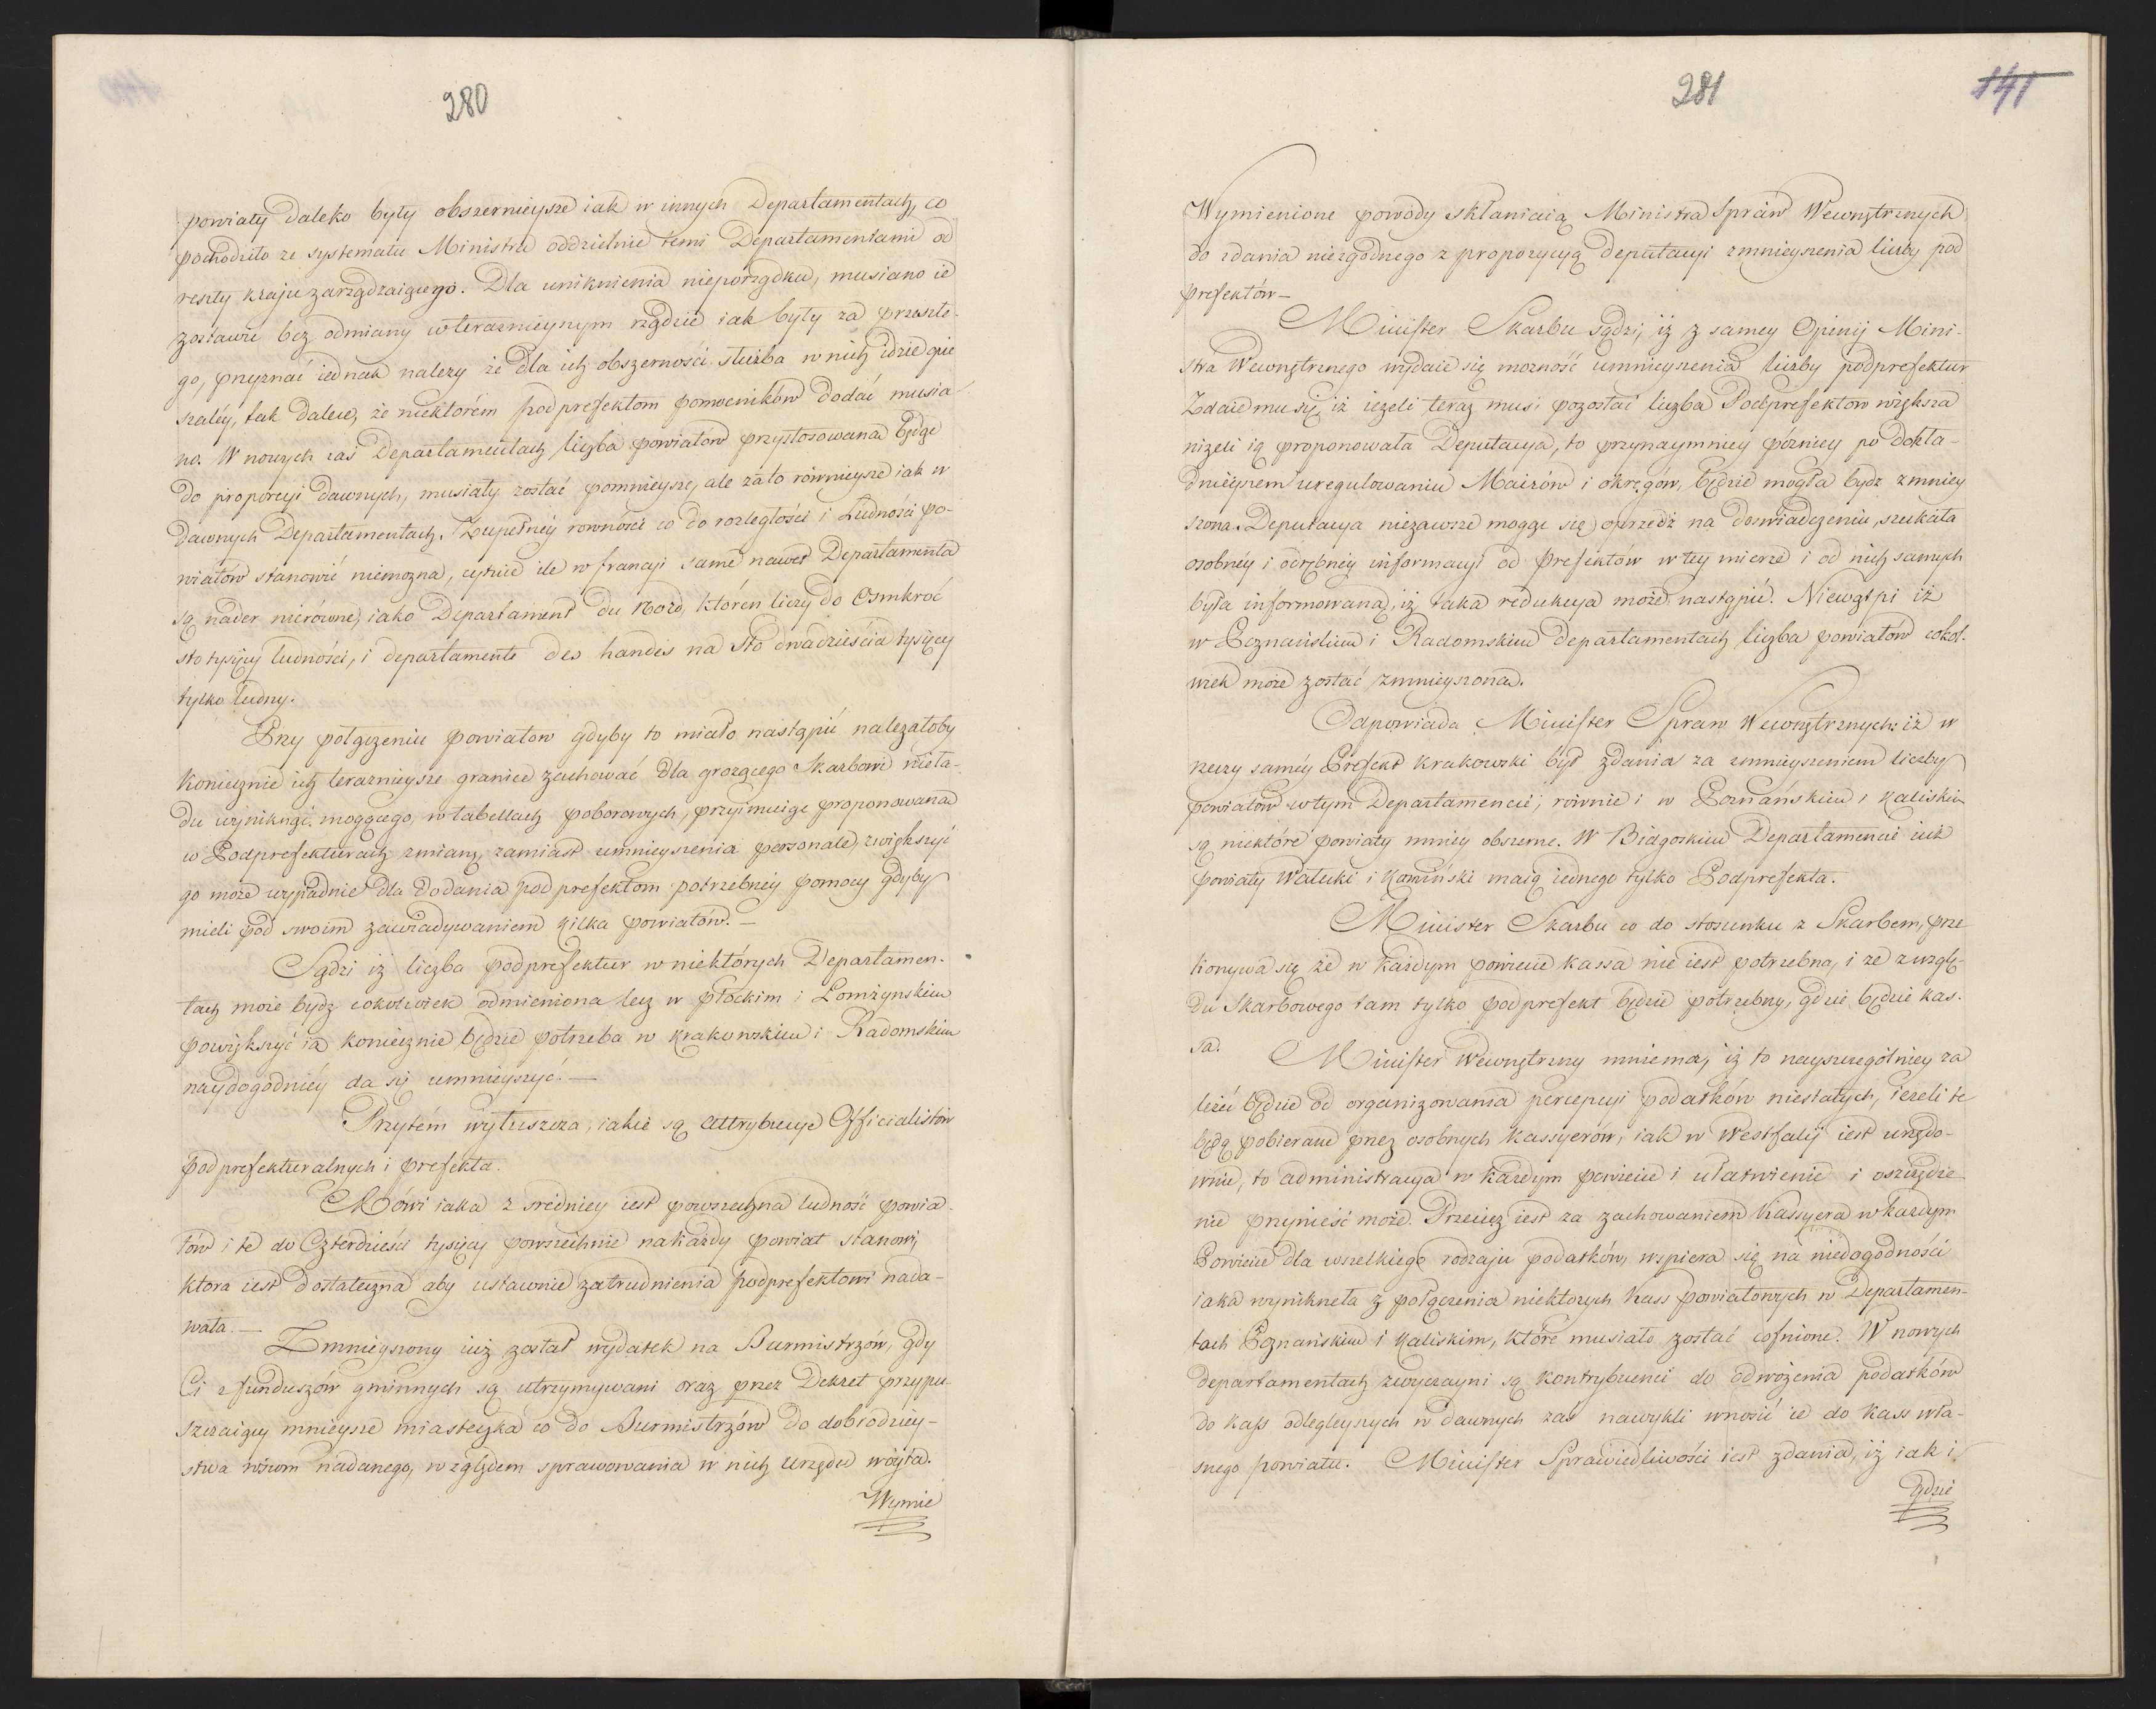 280
powiaty daleko były obszernieysze iak w innych Departamentach, co
pochodziło ze systematu Ministra oddzielnie temi Departamentami od
reszty kraju zarządzaiącego. Dla uniknienia nieporządku, musiano ie
zostawić bez odmiany w teraznieyszym rządzie iak były za przeszłe-
go, przyznać iednak należy że dla ich obszerności służba w nich idzie opie
szaléy, tak dalece, że niektórém podprefektom pomocników dodać musia-
no. W nowych zaś Departamentach liczba powiatów przystosowana będąc
do proporcyi dawnych, musiały zostać pomnieysze, ale zato równieysze iak w
dawnych Departamentach. Zupełnéy równości co do rozległości i Ludności po-
wiatów stanowić niemożna, ile w francyi same nawet Departamenta
są nader nierówne, iako Departament du Nord, któren liczy do Osmkroć
sto tysięcy ludności, i departamente des landes na Sto dwadzieścia tysięcy
tylko ludny.
Przy połączeniu powiatow gdyby to miało nastąpić należałoby
koniecznie ich teraznieysze granice zachować dla grożącego Skarbowi nieła-
du wyniknąć mogącego, w tabellach poborowych, przyimuiąc proponowana
w Podprefekturach zmianę, zamiast umnieyszenia personale, zwiększyć
go może wypadnie dla dodania podprefektom potrzebnéy pomocy gdyby
mieli pod swoim zawiadywaniem kilka powiatów. —
Sądzi iż liczba podprefektur w niektórych Departamen-
tach może bydź cokolwiek odmieniona lecz w płockim i Łomżynskim
powiększyć ią koniecznie będzie potrzeba w krakowskim i Radomskim
naydogodniéy da się umnieyszyć. —
Przytém wyłuszcza, iakie są Attrybucye Officialistów
podprefekturalnych i prefekta.
Mówi iaka z średniey iest powszechna ludność powia-
tów i te do Czterdzieści tysięcy powszechnie na każdy powiat stanowi,
ktora iest dostateczna aby ustawnie zatrudnienia podprefektowi nada-
wała. —
Zmnieyszony iuż został wydatek na Burmistrzów, gdy
Ci z funduszów gminnych są utrzymywani oraz przez Dekret przypu-
szczaiący mnieysze miasteczka co do Burmistrzów do dobrodziey-
stwa wsiom nadanego, względem sprawowania w nich Urzędu wóyta.
Wymie
281
141
Wymienione powody skłaniaią Ministra Spraw Wewnętrznych
do zdania niezgodnego z propozycyą deputacyi zmnieyszenia liczby pod
prefektów —
Minister Skarbu sądzi, iż z samey Opinij Mini-
stra Wewnętrznego wydaie się możność umnieyszenia liczby podprefektur
Zdaie mu się, iż ieżeli teraz musi pozostać liczba Podprefektow większa
niżeli ią proponowała Deputacya, to przynaymniey późniey po dokła-
dnieyszem uregulowaniu Mairów i okręgów, będzie mogła bydz zmniey
szona. Deputacya niezawsze mogąc się oprzedz na doswiadczeniu, szukała
osobnéy i odrębnéy informacyi od prefektów w tey mierze i od nich samych
była informowana, iż taka redukcya może nastąpić. Niewątpi iż
w Poznańskim i Radomskim departamentach liczba powiatów cokol-
wiek może zostać zmnieyszona.
Odpowiada Minister Spraw Wewnętrznych: iż w
rzeczy saméy Prefekt krakowski był zdania za zmnieyszeniem liczby
powiatów w tym Departamencie, równie i w Poznańskim i Kaliskim
są niektóre powiaty mniéy obszerne. W Bidgoskim Departamencie iuż
powiaty Wałecki i Kamiński maią iednego tylko Podprefekta.
Minister Skarbu co do stosunku z Skarbem, prze
konywa się że w każdym powiecie kassa nie iest potrzebna, i że z wzglę-
du Skarbowego tam tylko podprefekt będzie potrzebny, gdzie będzie kas-
sa.
Minister Wewnętrzny mniema, iż to nayszczególniey za
leżeć będzie od organizowania percepcyi podatków niestałych, ieżeli te
będą pobierane przez osobnych kassyerów, iak w Westfalij iest urzędo-
wnie, to administracya w każdym powiecie i ułatwienie i oszczędze
nie przynieść może. Przecież iest za zachowaniem kassyera w każdym
Powiecie dla wszelkiego rodzaju podatków, wspiera się na niedogodności
iaka wyniknęła z połączenia niektorych kass powiatowych w Departamen-
tach Poznańskim i kaliskim, które musiało zostać cofnione. W nowych
departamentach zwyczayni są kontrybuenci do odwożenia podatków
do kass odlegleyszych w dawnych zaś nawykli wnosić ie do kass wła-
snego powiatu. Minister Sprawiedliwości iest zdania, iż iak i
Gdzie